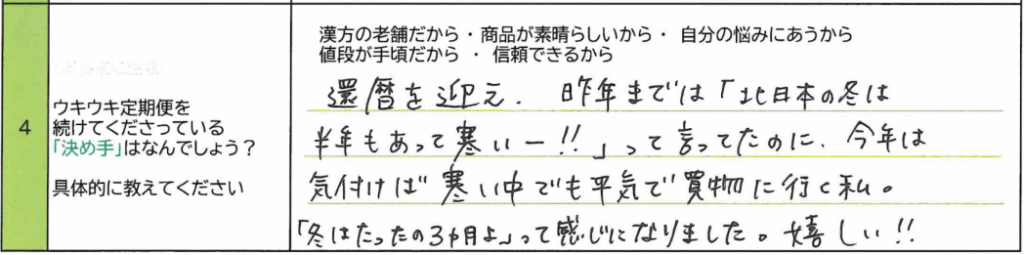 漢方の老舗だから・商品が素晴らしいから・ 自分の悩みにあうから
値段が手頃だから ・ 信頼できるから
4
ウキウキ定期便を
続けてくださっている
「決め手」はなんでしょう?
具体的に教えてください
還暦を迎え. 昨年までは「北日本の冬は
半年もあって寒いー!!」って言ってたのに、今年は
気付けば寒い中でも平気で買物に行く私。
「冬はたったの3ヵ月よ」って感じになりました。嬉しい!!